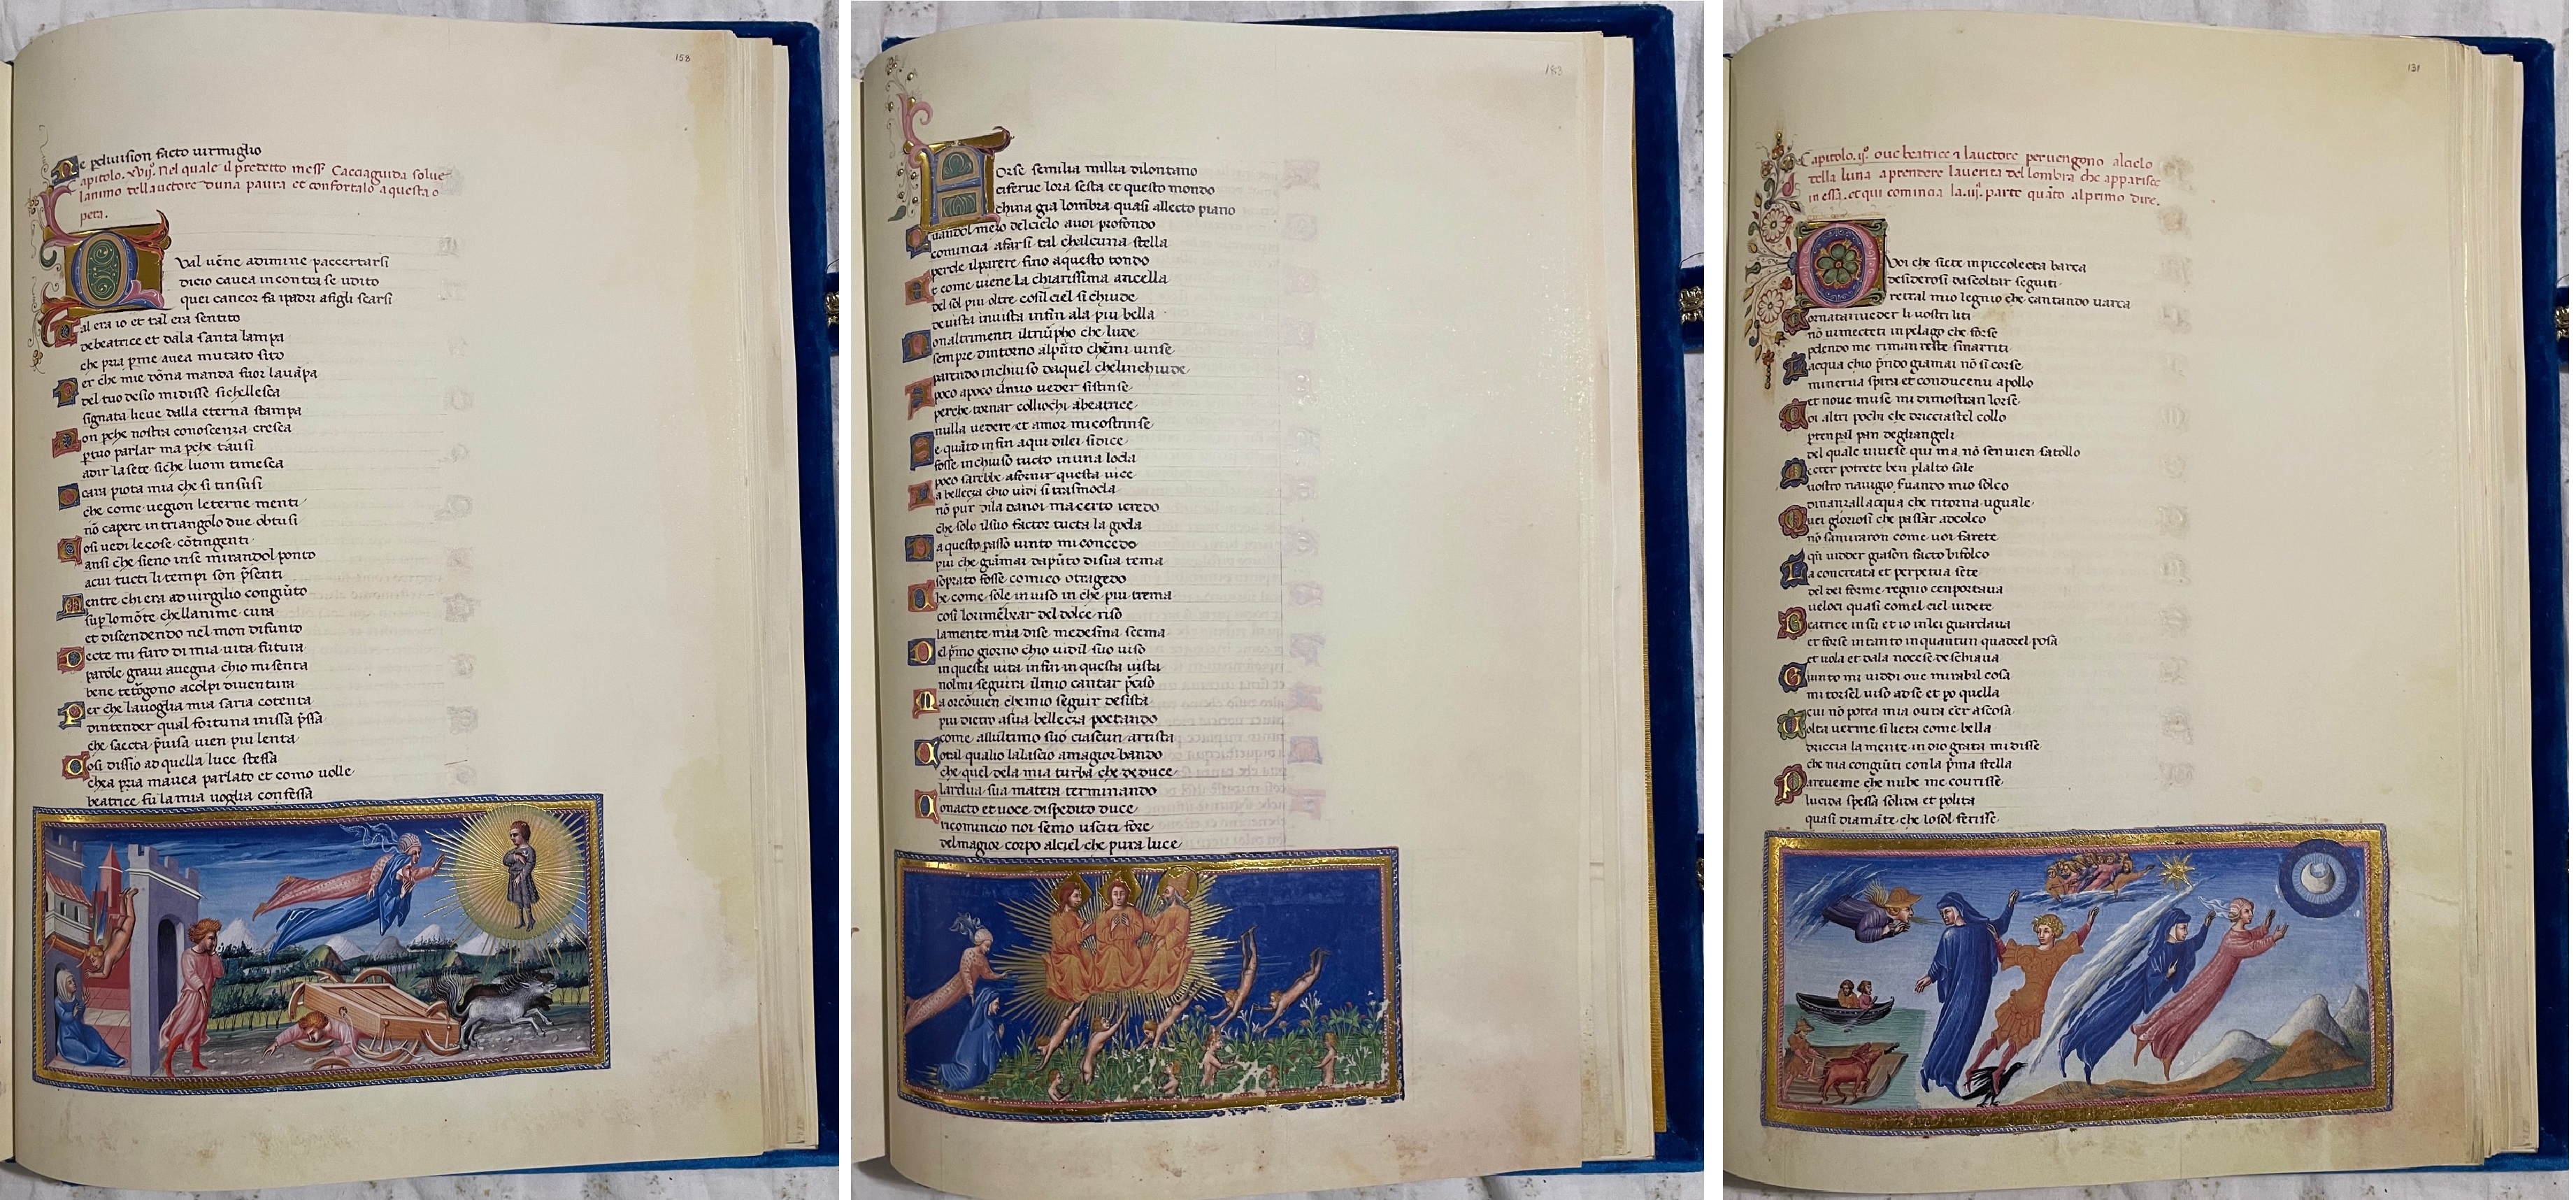 158
Ne pdivision facto vermiglio
Capitolo. xvij. Nel quale il predetto mess Cacciaguida solve
lanimo dellauctore duna paura et confortalo aquesta o
pera.
Qval vēne adimine paccertarsi
dicio cavea incontra se udito
quei cancor fa ipadri afigli scarsi
Tal era io et tal era sentito
debeatrice et dala santa lampa
che pria pme avea mutato sito
Per che mie dōna manda fuor lavāpa
del tuo desio midisse sichellesca
signata lieve dalla eterna stampa
Non pche nostra conoscenza cresca
ptuo parlar ma pche tausi
adir lasete siche luom timesca
O cara piota mia che si tinsusi
che come vegion leterne menti
nō capere intriangolo due obtusi
Cosi vedi lecose cōtingenti
ansi che sieno inse mirandol ponto
acui tucti li tempi son psenti
Mentre chi era ad virgilio congiūto
sup lo mōte chellanime cura
et discendendo nel mon difunto
Decte mi furo di mia vita futura
parole gravi avegna chio misenta
bene tetragono acolpi diventura
Per che lavoglia mia saria cotenta
dintender qual fortuna missa pssa
che saecta pvisa vien piu lenta
Cosi dissio ad quella luce stessa
chea pria mavea parlato et como volle
beatrice fu la mia voglia confessa
183
Forse semilia millia dilontano
ciferve lora sesta et questo mondo
china gia lombra quasi allecto piano
Quandol meço delcielo anoi profondo
comincia afarsi tal chalcuna stella
perde ilparere fino aquesto fondo
Et come viene la chiarissima ancella
del sol piu oltre cosil ciel si chiude
devista invista infin ala piu bella
Non altrimenti iltriūpho che lude
sempre dintorno alpūto chemi vinse
parendo inchiuso daquel chelinchiude
A poco apoco ilmio veder sistinse
perche tornar colliochi abeatrice
nulla vedere et amor micostrinse
Se quāto infin aqui dilei sidice
fosse inchiuso tucto in una loda
poco sarebbe afornir questa vice
La bellezza chio vidi si trasmoda
nō pur dila danoi ma certo io credo
che solo ilsuo factor tucta la goda
Da questo passo vinto mi concedo
piu che giamai dapūto disua tema
soprato fosse comico o tragedo
Che come sole inviso in che piu trema
cosi lorimēbrar del dolce riso
lamente mia dise medesma scema
Del pmo giorno chio vidil suo viso
in questa vita infin in questa vista
nolmi seguira il mio cantar pciso
Ma orcōvien chemio seguir desista
piu dietro asua bellezza poetando
come allultimo suo ciascun artista
Cotal qualio lalascio amagior bando
che quel dela mia turba che deduce
lardua sua matera terminando
Con acto et voce dispedito duce
ricomincio noi semo usciti fore
delmagior corpo alciel che pura luce
131
Capitolo. ij. ove beatrice et lauctore pervengono alcielo
della luna aprendere laverita del lombra che apparisce
in essa. et qui comincia la .iij. parte quāto alprimo dire.
O Voi che siete inpiccolecta barca
desiderosi dascoltar seguiti
retral mio legnio che cantando varca
Tornata riveder li vostri liti
nō vi mecteti in pelago che forse
pdendo me rimarreste smarriti
Lacqua chio pndo giamai nō si corse
minerva spira et conducemi apollo
et nove muse mi dimostran lorse
Voi altri pochi che dricciastel collo
ptenpal pan degliangeli
del quale vivese qui ma nō sen vien satollo
Mecter potrete ben plalto sale
vostro navigio servando mio solco
dinanzallacqua che ritorna uguale
Quei gloriosi che passar adcolco
nō samiraron come voi farete
qn vidder giason facto bifolco
La concreata et perpetua sete
del dei forme regnio cenportava
veloci quasi comel ciel vedete
Beatrice in su et io in lei guardava
et forse in tanto in quantun quadrel posa
et vola et dala noce se deschiava
Giunto mi viddi ove mirabil cosa
mi torsel viso adse et po quella
cui nō potea mia ovra eer ascosa
Volta verme si lieta come bella
driccia la mente in dio grata midisse
che nia congiūti con la pma stella
Pareveme che nube me coprisse
lucida spessa solida et polita
quasi diamāte che losol ferisse